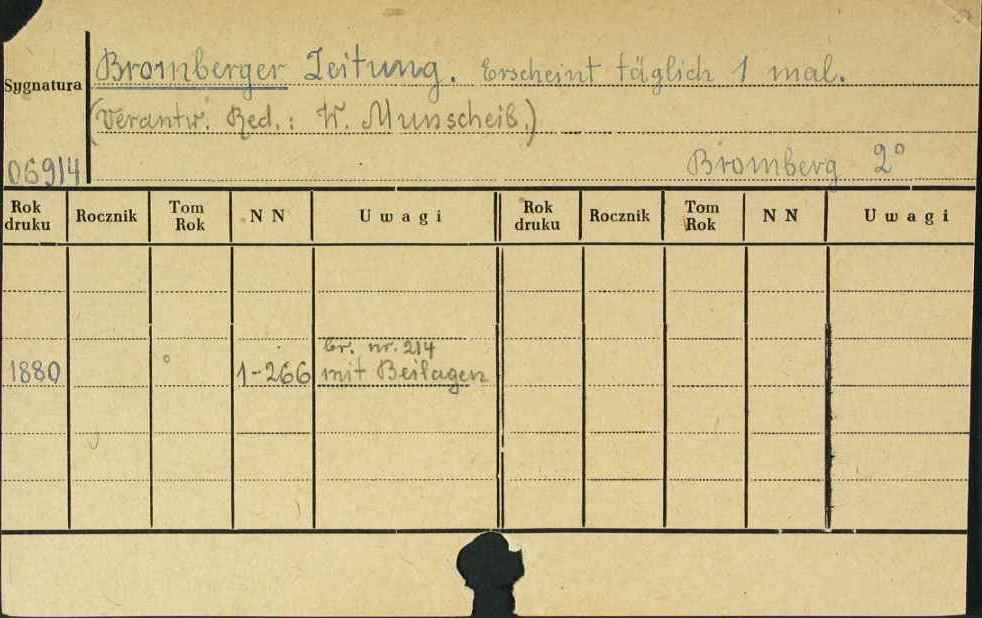 Sygnatura
Bromberger Zeitung. Erscheint täglich 1 mal.
(Verantw. Red.: W. Munscheib.)
06914
Bromberg 2°
Rok druku Rocznik Tom Rok N N Uwagi Rok druku Rocznik Tom Rok N N Uwagi
br. nr. 214
1880 1-266 mit Beilagen